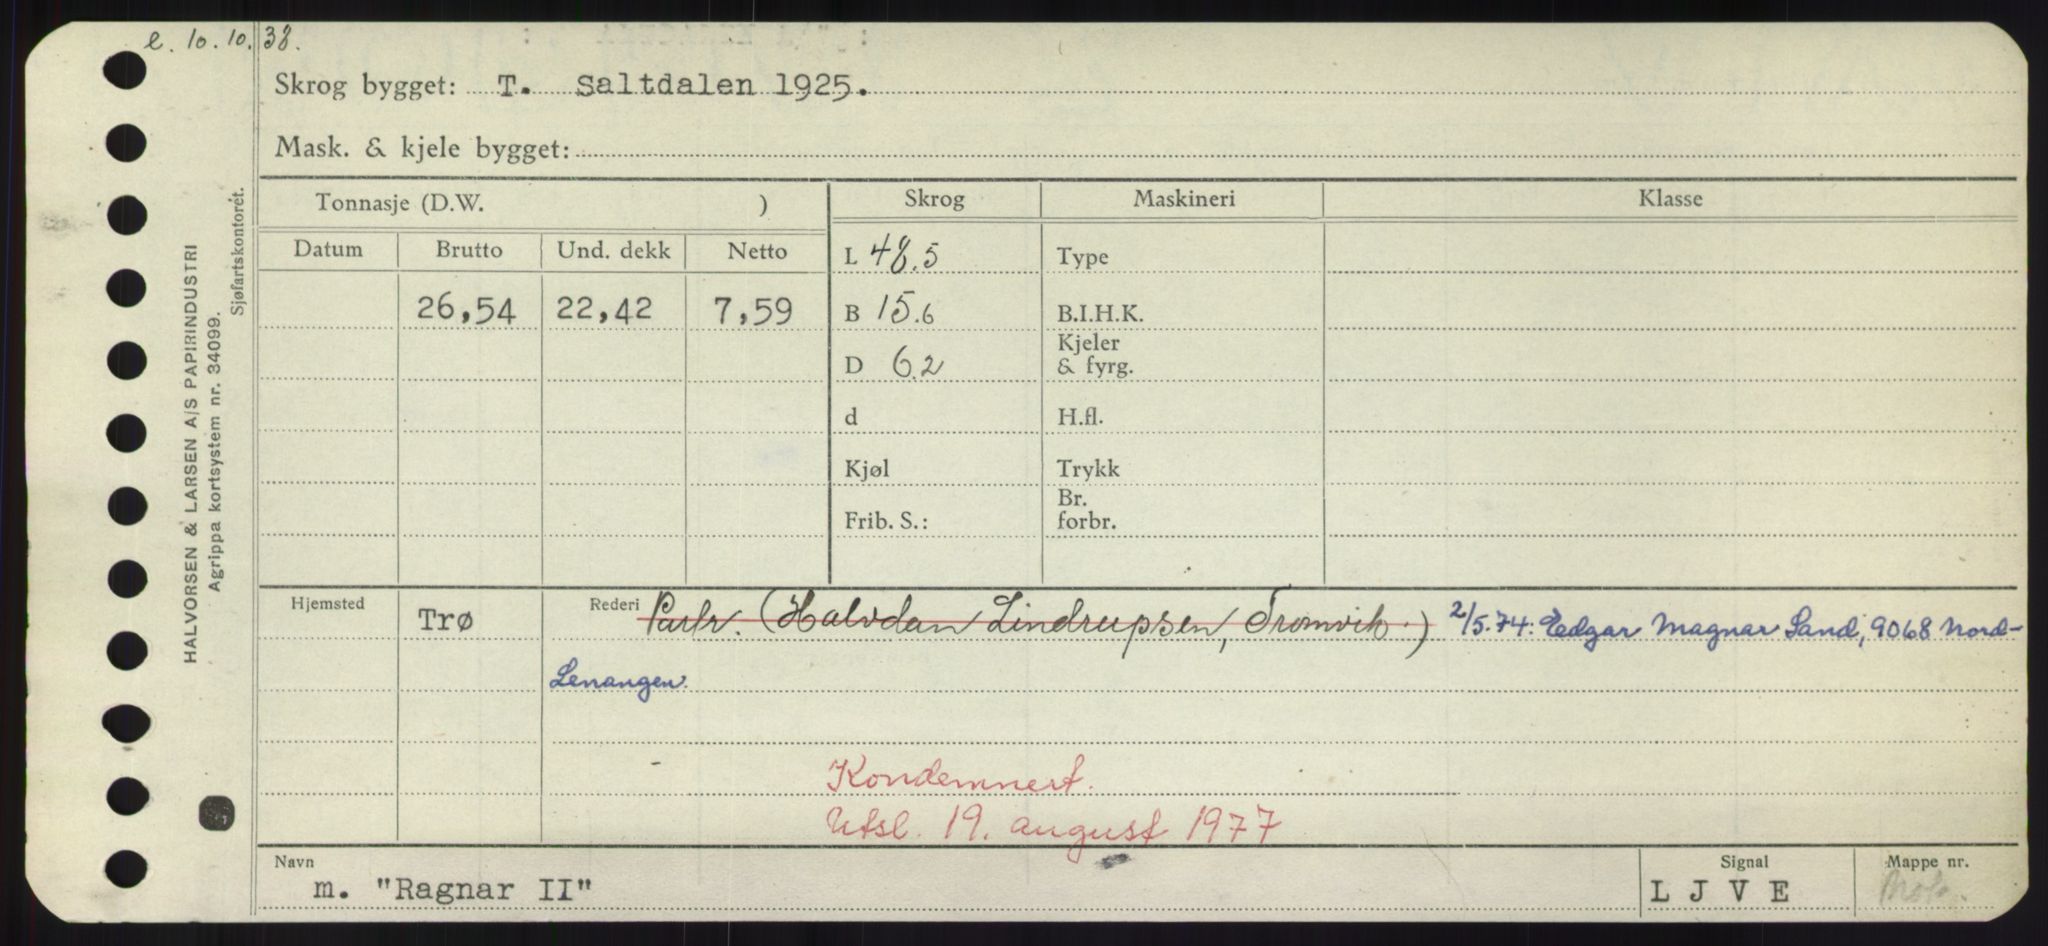 e. 10.10.38.
Skrog bygget: T. Saltdalen 1925.
Mask. & kjele bygget:
HALVORSEN & LARSEN A/S PAPIRINDUSTRI
Agrippa kortsystem nr. 34099.
Sjøfartskontoret.
Tonnasje (D.W. ) Skrog Maskineri Klasse
Datum Brutto Und. dekk Netto L 48.5 Type
26,54 22,42 7,59 B 15.6 B.I.H.K.
Kjeler
D 6.2 & fyrg.
d H.fl.
Kjøl Trykk
Br.
Frib. S.: forbr.
Hjemsted Trø Rederi Partr. (Halvdan Lindrupsen, Tromvik.) 2/5.74. Edgar Magnar Sand, 9068 Nord-
Lenangen.
Kondemnert.
Utsl. 19. august 1977
Navn Signal Mappe nr.
m. "Ragnar II" L J V E